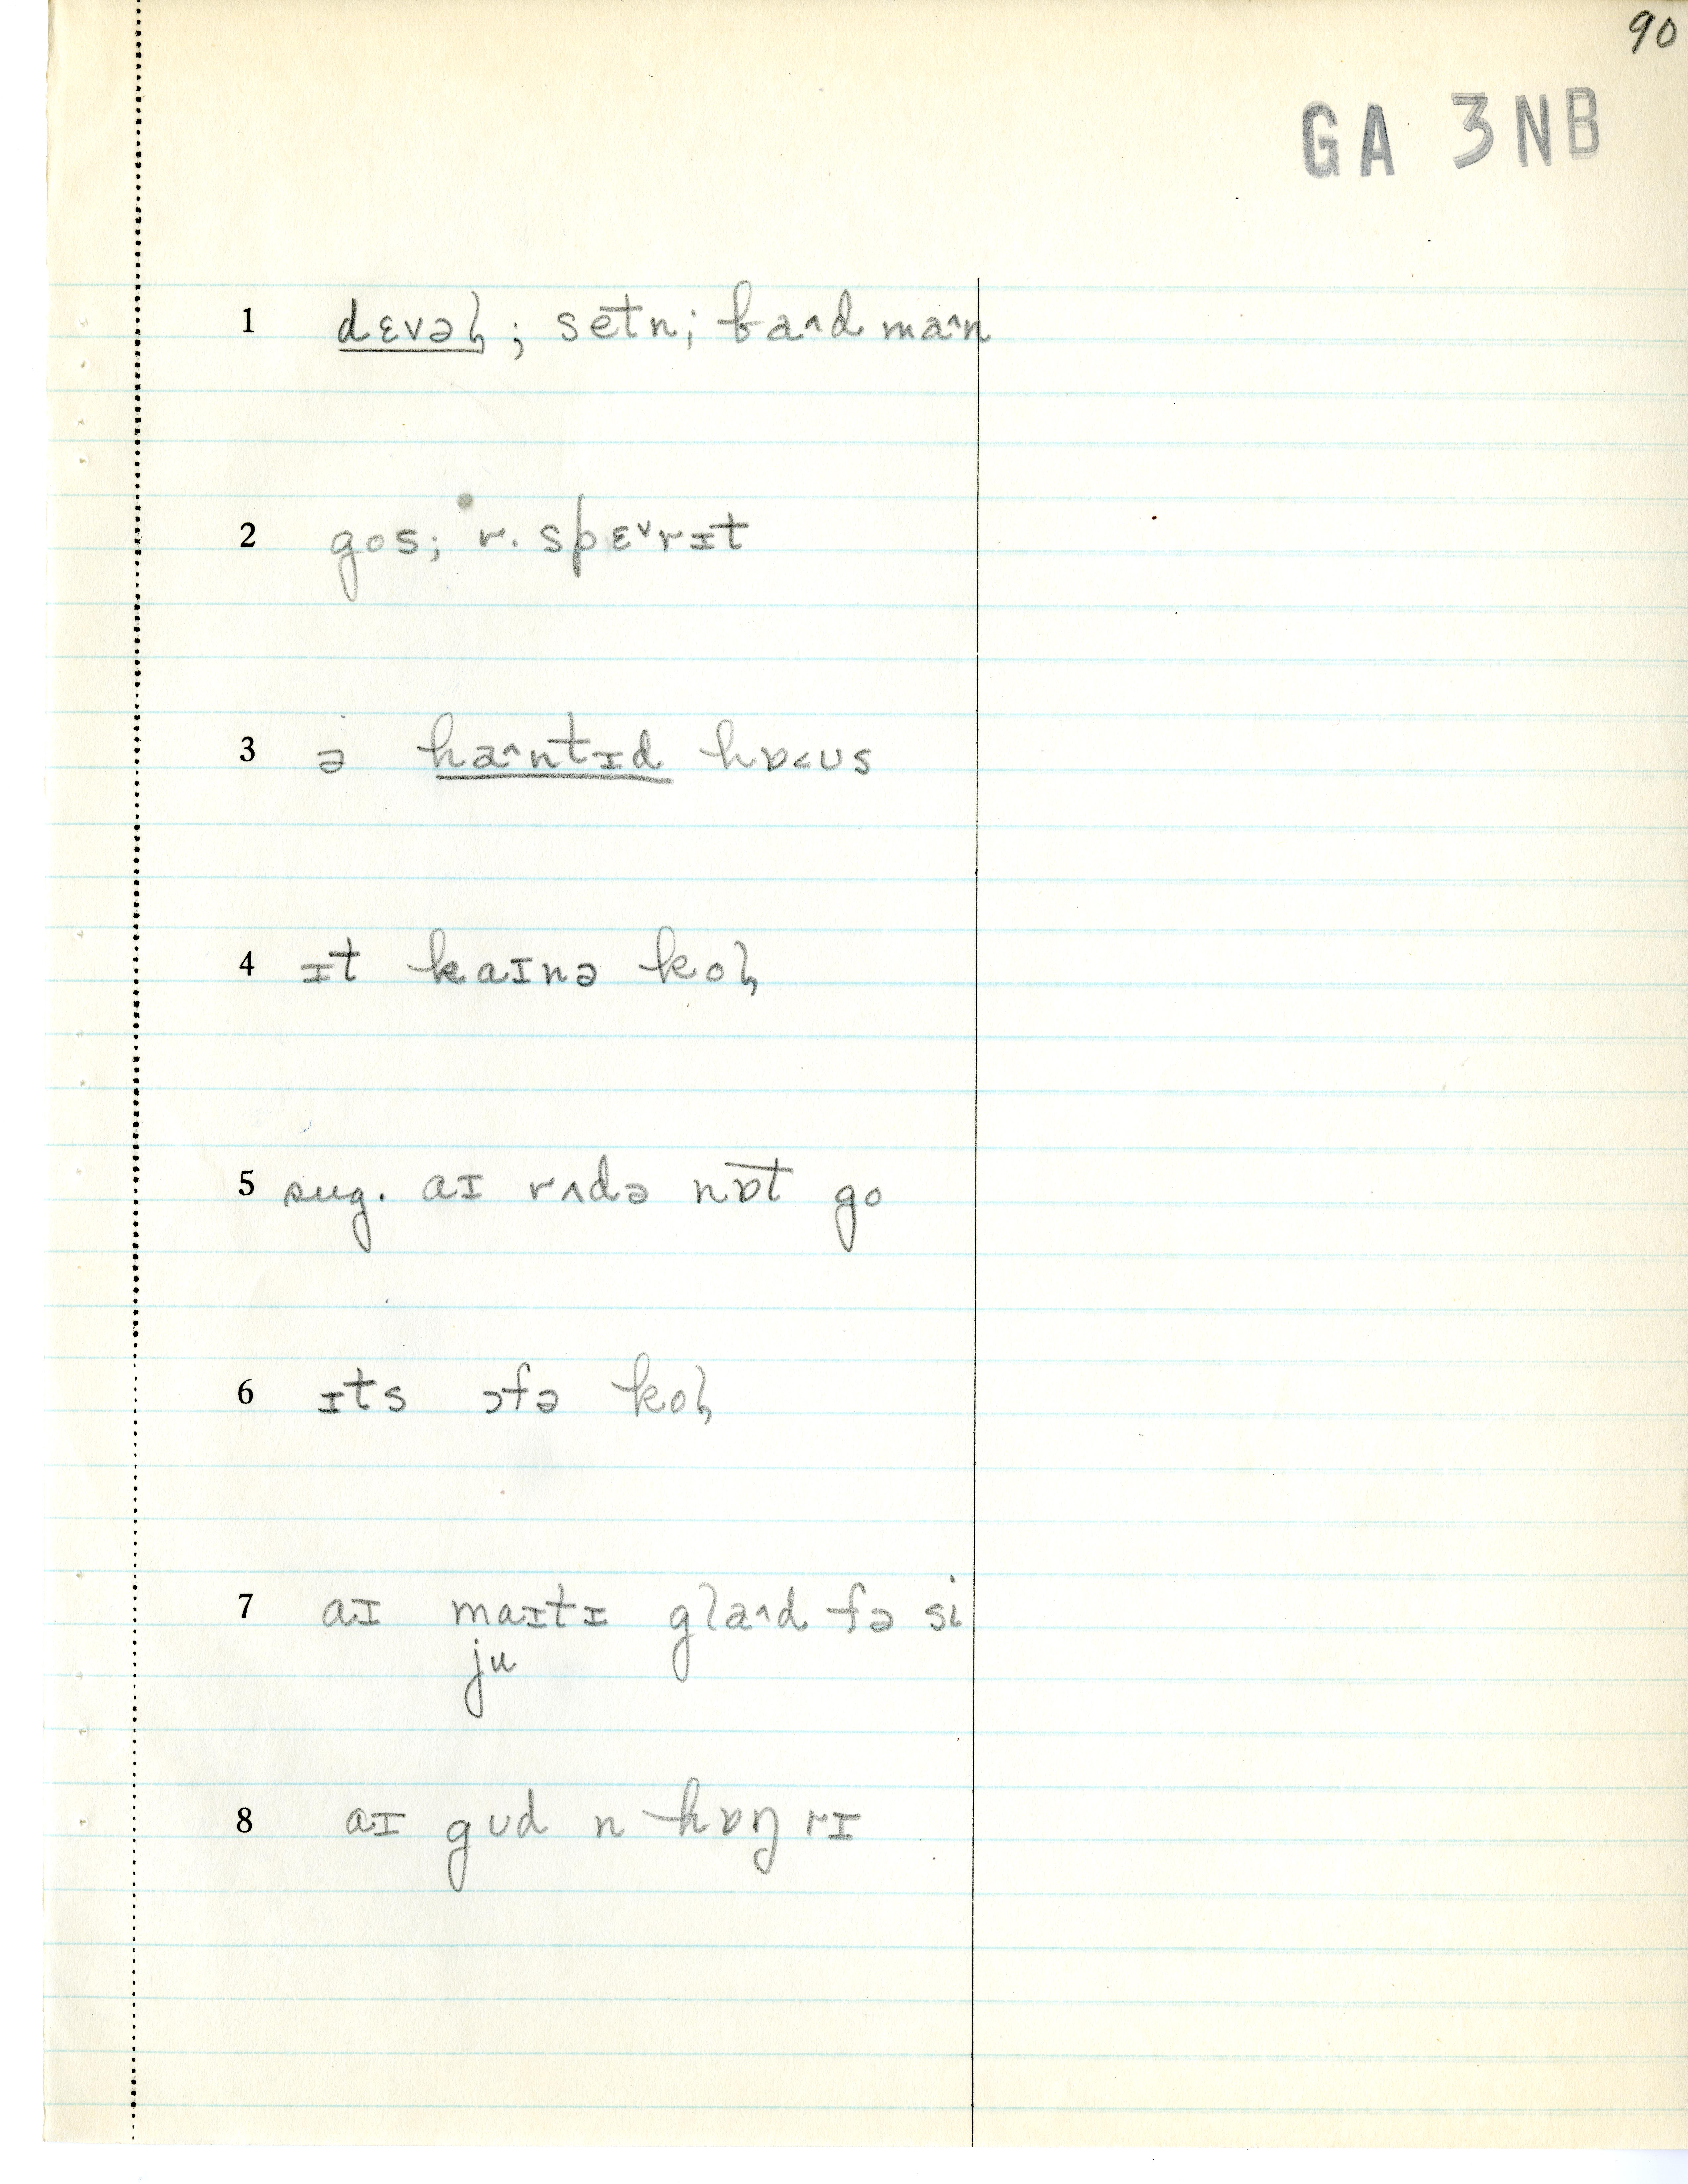 90
GA 3NB
1 dɛvəl̡; setn; ba^d ma^n
2 gos; r. spɛ˅rɪt
3 ə ha^ntɪd hɒ˂ʊs
4 ɪt kaɪnə kol̡
5 sug. aɪ rʌdə nɒt go
6 ɪts ɔfə kol̡
7 aɪ maɪtɪ gla^d fə si
ju
8 aɪ gʊd n hɒŋrɪ